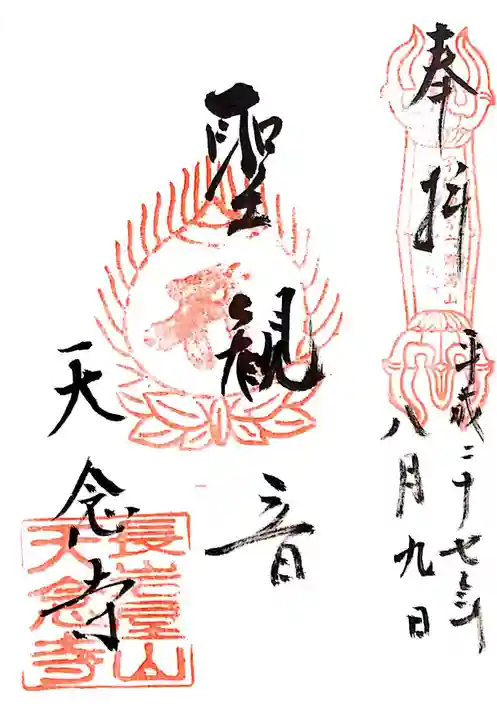 奉拝
平成二十七年
八月九日
聖観音
天念寺
長岩屋山
天念寺